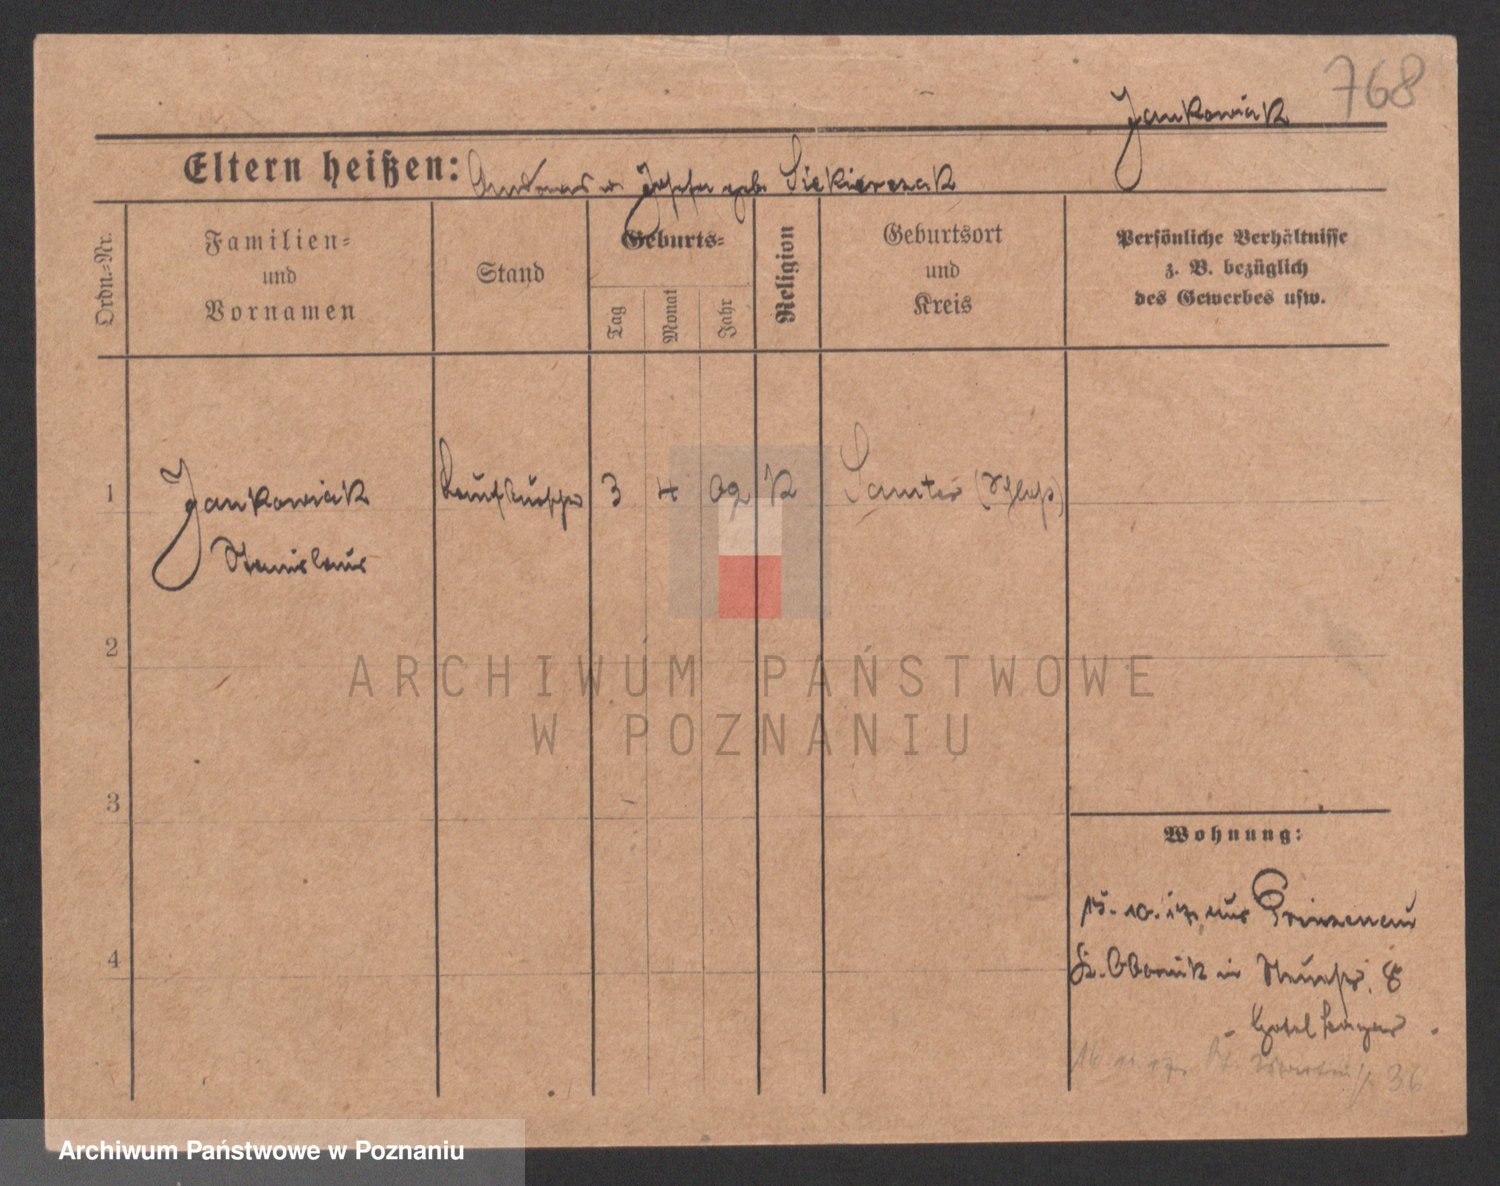 768
Jankowiak
Eltern heißen: Andreas u Josefa geb. Siekierczak
Ordn.=Nr.
Familien=
und
Vornamen
Stand
Geburts=
Tag
Monat
Jahr
Religion
Geburtsort
und
Kreis
Persönliche Verhältnisse
z. B. bezüglich
des Gewerbes usw.
1
Jankowiak
Laufbursche
3
4
02
K
Samter (Schloß)
Stanislaus
2
ARCHIWUM PAŃSTWOWE
W POZNANIU
3
Wohnung:
15. 10. 17. aus Prinzenau
Kr. Obornik in 8
4
- Hotel -
16. 11. 17. St. 36
Archiwum Państwowe w Poznaniu